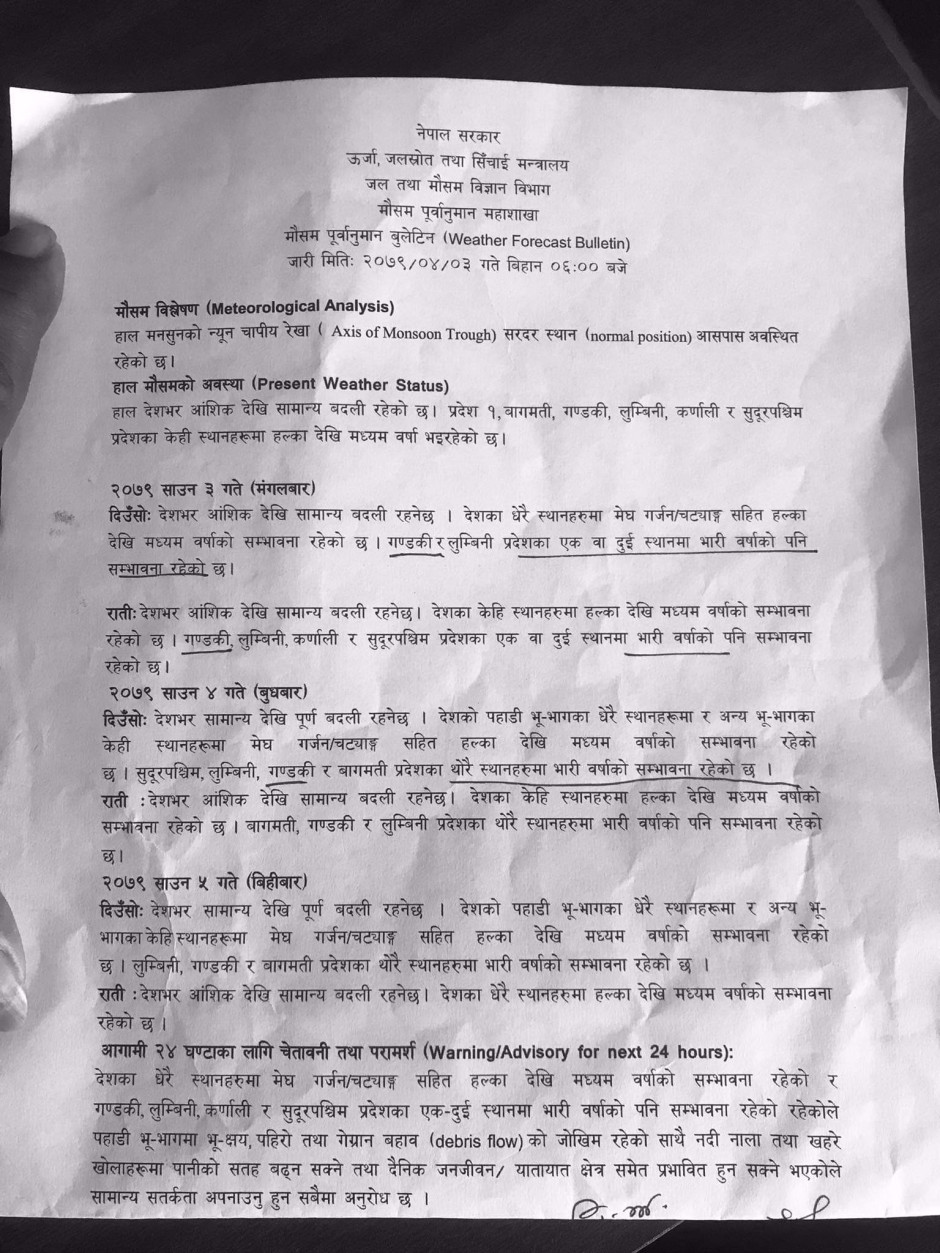 नेपाल सरकार
ऊर्जा, जलस्रोत तथा सिँचाई मन्त्रालय
जल तथा मौसम विज्ञान विभाग
मौसम पूर्वानुमान महाशाखा
मौसम पूर्वानुमान बुलेटिन (Weather Forecast Bulletin)
जारी मितिः २०७९/०४/०३ गते बिहान ०६:०० बजे
मौसम विश्लेषण (Meteorological Analysis)
हाल मनसुनको न्यून चापीय रेखा ( Axis of Monsoon Trough) सरदर स्थान (normal position) आसपास अवस्थित
रहेको छ।
हाल मौसमको अवस्था (Present Weather Status)
हाल देशभर आंशिक देखि सामान्य बदली रहेको छ। प्रदेश १, बागमती, गण्डकी, लुम्बिनी, कर्णाली र सुदूरपश्चिम
प्रदेशका केही स्थानहरूमा हल्का देखि मध्यम वर्षा भइरहेको छ।
२०७९ साउन ३ गते (मंगलबार)
दिउँसोः देशभर आंशिक देखि सामान्य बदली रहनेछ । देशका धेरै स्थानहरुमा मेघ गर्जन/चट्याङ्ग सहित हल्का
देखि मध्यम वर्षाको सम्भावना रहेको छ । गण्डकी र लुम्बिनी प्रदेशका एक वा दुई स्थानमा भारी वर्षाको पनि
सम्भावना रहेको छ।
रातीः देशभर आंशिक देखि सामान्य बदली रहनेछ। देशका केहि स्थानहरुमा हल्का देखि मध्यम वर्षाको सम्भावना
रहेको छ । गण्डकी, लुम्बिनी, कर्णाली र सुदूरपश्चिम प्रदेशका एक वा दुई स्थानमा भारी वर्षाको पनि सम्भावना
रहेको छ।
२०७९ साउन ४ गते (बुधबार)
दिउँसोः देशभर सामान्य देखि पूर्ण बदली रहनेछ । देशको पहाडी भू-भागका धेरै स्थानहरूमा र अन्य भू-भागका
केही स्थानहरूमा मेघ गर्जन/चट्याङ्ग सहित हल्का देखि मध्यम वर्षाको सम्भावना रहेको
छ । सुदूरपश्चिम, लुम्बिनी, गण्डकी र बागमती प्रदेशका थोरै स्थानहरुमा भारी वर्षाको सम्भावना रहेको छ ।
राती : देशभर आंशिक देखि सामान्य बदली रहनेछ। देशका केहि स्थानहरुमा हल्का देखि मध्यम वर्षाको
सम्भावना रहेको छ । बागमती, गण्डकी र लुम्बिनी प्रदेशका थोरै स्थानहरुमा भारी वर्षाको पनि सम्भावना रहेको
छ।
२०७९ साउन ५ गते (बिहीबार)
दिउँसोः देशभर सामान्य देखि पूर्ण बदली रहनेछ । देशको पहाडी भू-भागका धेरै स्थानहरूमा र अन्य भू-
भागका केहि स्थानहरूमा मेघ गर्जन/चट्याङ्ग सहित हल्का देखि मध्यम वर्षाको सम्भावना रहेको
छ । लुम्बिनी, गण्डकी र बागमती प्रदेशका थोरै स्थानहरुमा भारी वर्षाको सम्भावना रहेको छ ।
राती : देशभर आंशिक देखि सामान्य बदली रहनेछ। देशका धेरै स्थानहरुमा हल्का देखि मध्यम वर्षाको सम्भावना
रहेको छ ।
आगामी २४ घण्टाका लागि चेतावनी तथा परामर्श (Warning/Advisory for next 24 hours):
देशका धेरै स्थानहरुमा मेघ गर्जन/चट्याङ्ग सहित हल्का देखि मध्यम वर्षाको सम्भावना रहेको र
गण्डकी, लुम्बिनी, कर्णाली र सुदूरपश्चिम प्रदेशका एक-दुई स्थानमा भारी वर्षाको पनि सम्भावना रहेको रहेकोले
पहाडी भू-भागमा भू-क्षय, पहिरो तथा गेग्रान बहाव (debris flow) को जोखिम रहेको साथै नदी नाला तथा खहरे
खोलाहरूमा पानीको सतह बढ्न सक्ने तथा दैनिक जनजीवन/ यातायात क्षेत्र समेत प्रभावित हुन सक्ने भएकोले
सामान्य सतर्कता अपनाउनु हुन सबैमा अनुरोध छ ।